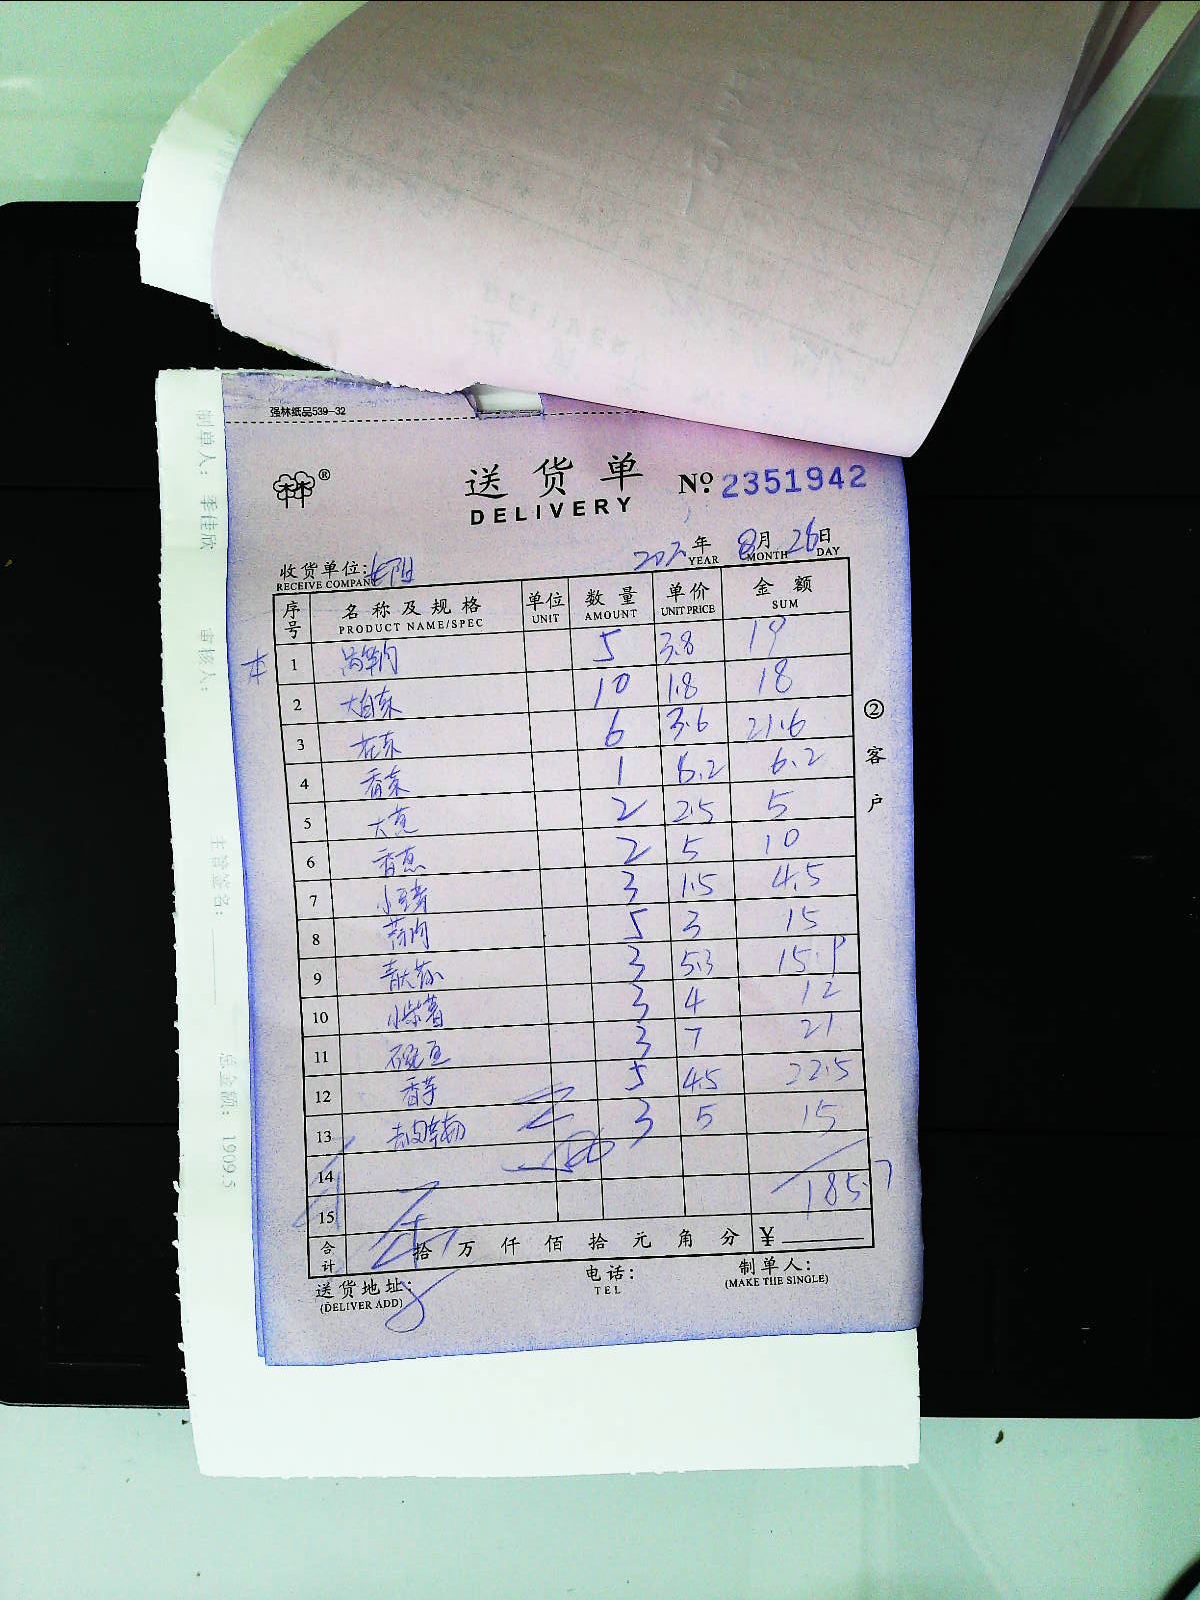 强林纸品539-32
送货单
DELIVERY
No. 2351942
年 8月 26日
YEAR MONTH DAY
收货单位:
RECEIVE COMPANY
序号 名称及规格 单位 数量 单价 金额
PRODUCT NAME/SPEC UNIT AMOUNT UNIT PRICE SUM
1 5 3.8 19
2 大白菜 10 1.8 18
3 花菜 6 3.6 21.6
4 香菜 1 6.2 6.2
5 大葱 2 2.5 5
6 香葱 2 5 10
7 3 1.5 4.5
8 5 3 15
9 3 5.3 15.9
10 小紫薯 3 4 12
11 3 7 21
12 香芋 5 4.5 22.5
13 3 5 15
14
15 185.7
合计 拾 万 仟 佰 拾 元 角 分 ¥
送货地址:
(DELIVER ADD)
电话:
TEL
制单人:
(MAKE THE SINGLE)
②客户
制单人: 季佳欣
审核人:
主管签名:
总金额: 1909.5